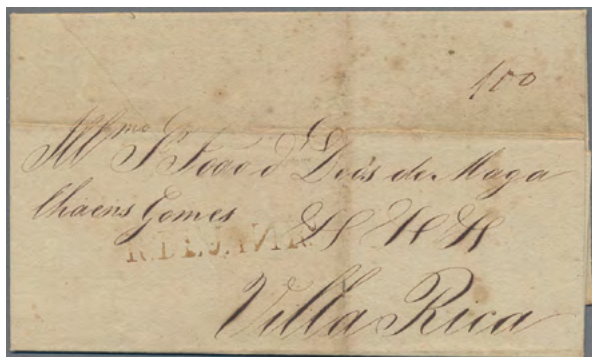 100
Illmo Sr João d' Deos de Maga
lhaens Gomes
R. DE J. NRO
Villa Rica